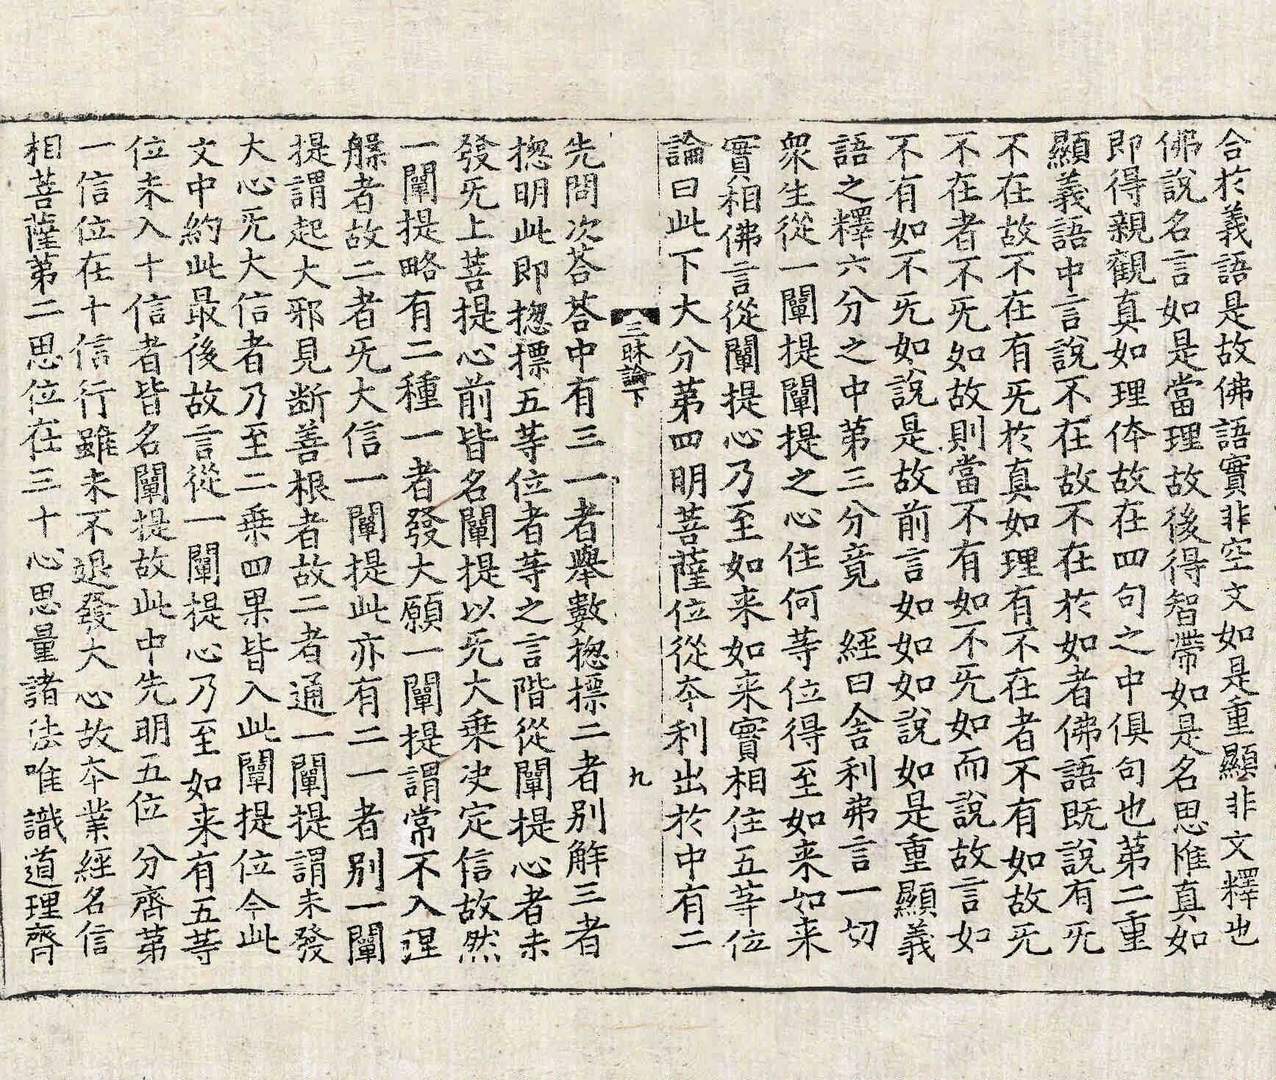 合於義語是故佛語實非空文如是重顯非文釋也
佛說名言如是當理故後得智帶如是名思惟真如
即得親觀真如理体故在四句之中俱句也第二重
顯義語中言說不在故不在於如者佛語旣說有旡
不在故不在有旡於真如理有不在者不有如故旡
不在者不旡如故則當不有如不旡如而說故言如
不有如不旡如說是故前言如如如說如是重顯義
語之釋六分之中第三分竟　經曰舍利弗言一切
衆生從一闡提闡提之心住何等位得至如来如来
實相佛言從闡提心乃至如来如来實相住五等位
論曰此下大分第四明菩薩位從夲利出於中有二
三昧論下
九
先問次荅荅中有三一者舉數揔摽二者别解三者
揔明此即揔摽五等位者等之言階從闡提心者未
發旡上菩提心前皆名闡提以旡大乗决定信故然
一闡提略有二種一者發大願一闡提謂常不入涅
槃者故二者旡大信一闡提此亦有二一者别一闡
提謂起大邪見断善根者故二者通一闡提謂未發
大心旡大信者乃至二乗四果皆入此闡提位今此
文中約此最後故言從一闡提心乃至如来有五等
位未入十信者皆名闡提故此中先明五位分齊第
一信位在十信行雖未不退發大心故夲業經名信
相菩薩第二思位在三十心思量諸法唯識道理齊